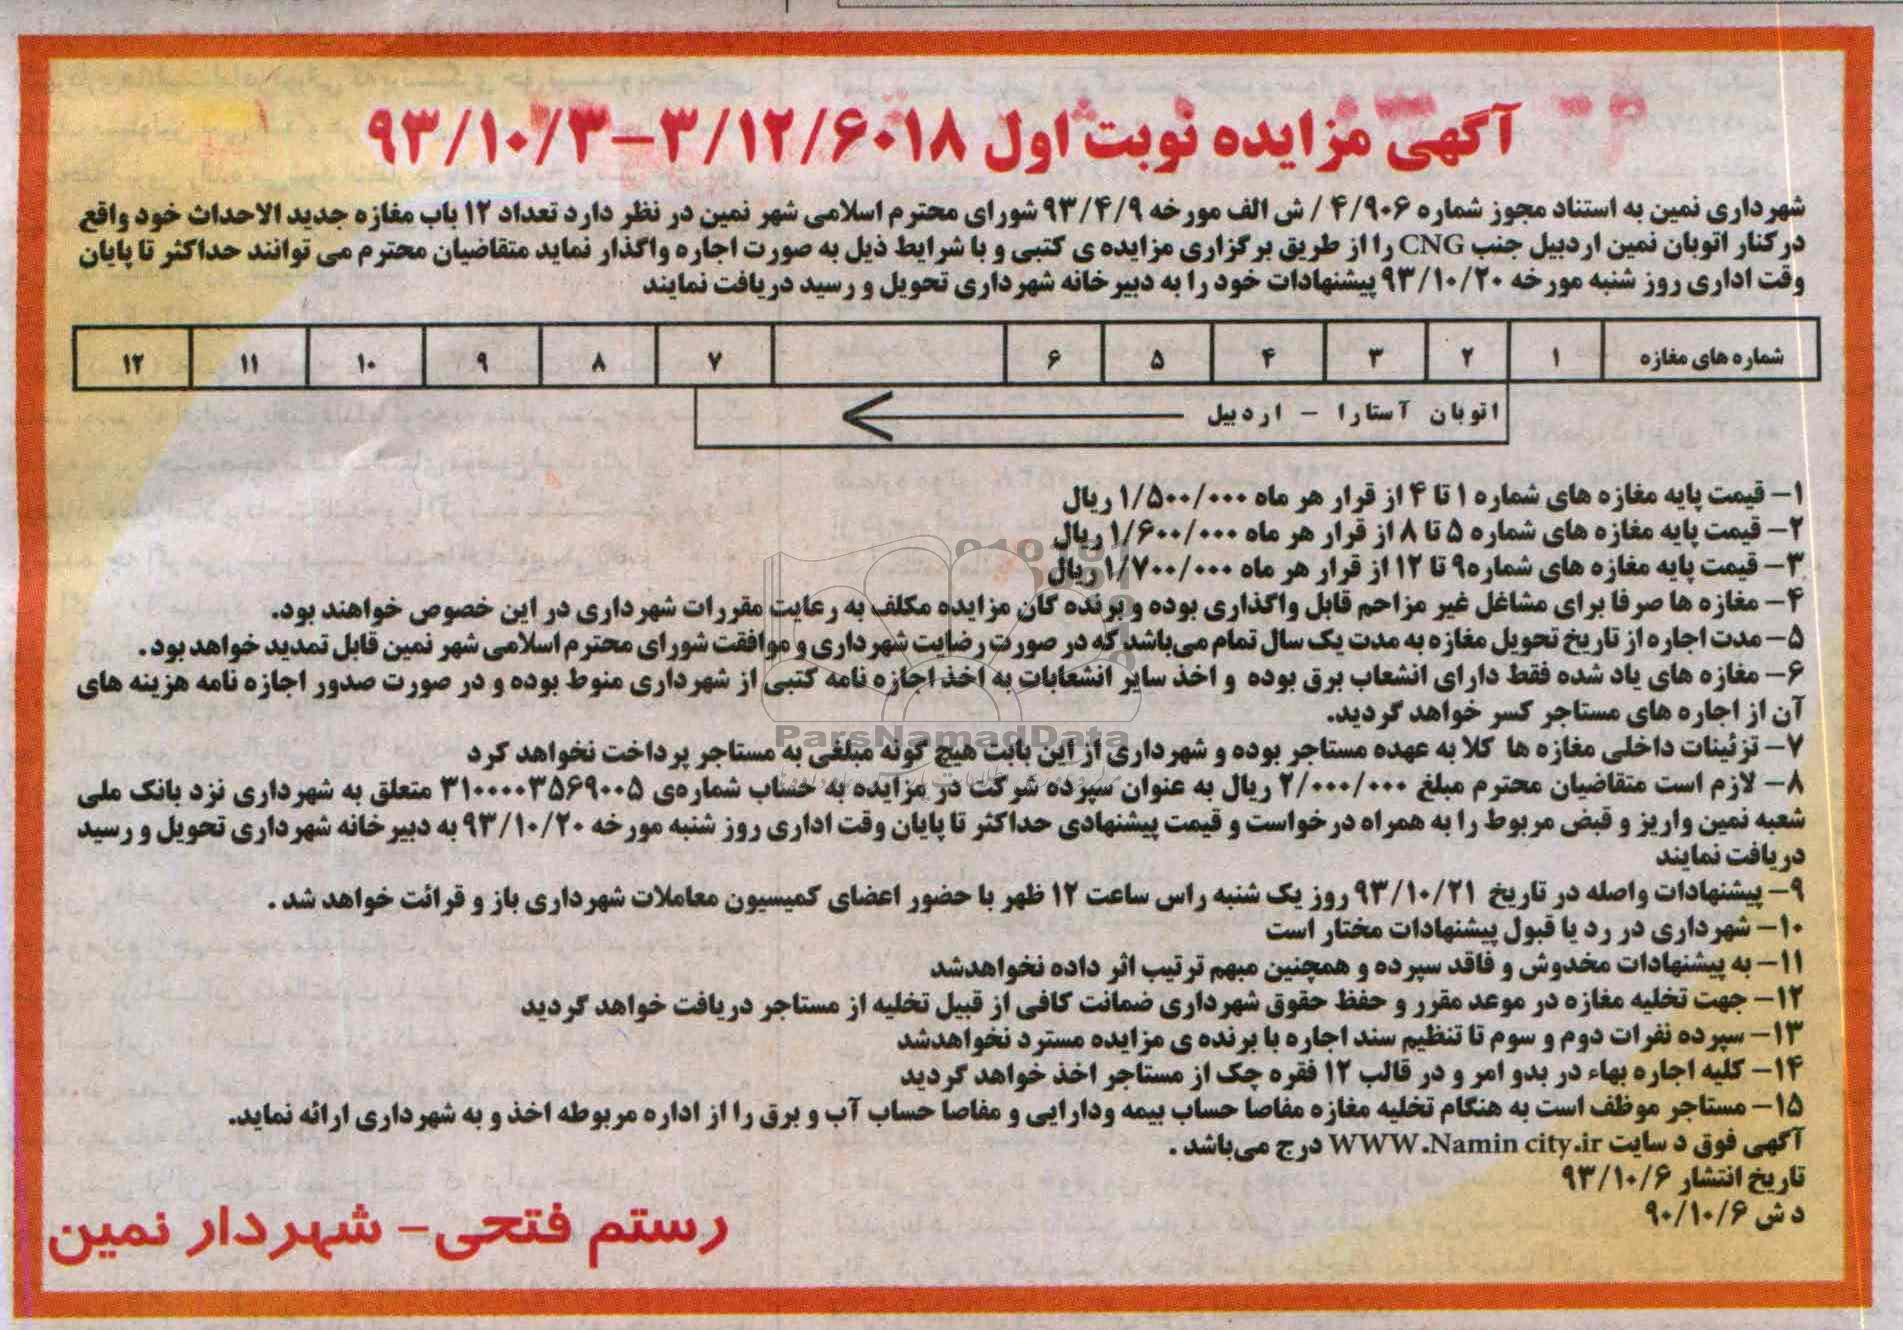 آگهی مزایده نوبت اول ۳/۱۲/۶۰۱۸–۹۳/۱۰/۳
شهرداری نمین به استناد مجوز شماره ۴/۹۰۶ / ش الف مورخه ۹۳/۴/۹ شورای محترم اسلامی شهر نمین در نظر دارد تعداد ۱۲ باب مغازه جدید الاحداث خود واقع
در کنار اتوبان نمین اردبیل جنب CNG را از طریق برگزاری مزایده ی کتبی و با شرایط ذیل به صورت اجاره واگذار نماید متقاضیان محترم می توانند حداکثر تا پایان
وقت اداری روز شنبه مورخه ۹۳/۱۰/۲۰ پیشنهادات خود را به دبیرخانه شهرداری تحویل و رسید دریافت نمایند
شماره های مغازه ۱ ۲ ۳ ۴ ۵ ۶ ۷ ۸ ۹ ۱۰ ۱۱ ۱۲
اتوبان آستارا - اردبیل
۱- قیمت پایه مغازه های شماره ۱ تا ۴ از قرار هر ماه ۱/۵۰۰/۰۰۰ ریال
۲- قیمت پایه مغازه های شماره ۵ تا ۸ از قرار هر ماه ۱/۶۰۰/۰۰۰ ریال
۳- قیمت پایه مغازه های شماره۹ تا ۱۲ از قرار هر ماه ۱/۷۰۰/۰۰۰ ریال
۴- مغازه ها صرفا برای مشاغل غیر مزاحم قابل واگذاری بوده و برنده گان مزایده مکلف به رعایت مقررات شهرداری در این خصوص خواهند بود.
۵- مدت اجاره از تاریخ تحویل مغازه به مدت یک سال تمام می‌باشد که در صورت رضایت شهرداری و موافقت شورای محترم اسلامی شهر نمین قابل تمدید خواهد بود.
۶- مغازه های یاد شده فقط دارای انشعاب برق بوده و اخذ سایر انشعابات به اخذ اجازه نامه کتبی از شهرداری منوط بوده و در صورت صدور اجازه نامه هزینه های
آن از اجاره های مستاجر کسر خواهد گردید.
ParsNamadData
۷- تزئینات داخلی مغازه ها کلا به عهده مستاجر بوده و شهرداری از این بابت هیچ گونه مبلغی به مستاجر پرداخت نخواهد کرد
۸- لازم است متقاضیان محترم مبلغ ۲/۰۰۰/۰۰۰ ریال به عنوان سپرده شرکت در مزایده به حساب شماره‌ی ۳۱۰۰۰۰۳۵۶۹۰۰۵ متعلق به شهرداری نزد بانک ملی
شعبه نمین واریز و قبض مربوط را به همراه درخواست و قیمت پیشنهادی حداکثر تا پایان وقت اداری روز شنبه مورخه ۹۳/۱۰/۲۰ به دبیرخانه شهرداری تحویل و رسید
دریافت نمایند
۹- پیشنهادات واصله در تاریخ ۹۳/۱۰/۲۱ روز یک شنبه راس ساعت ۱۲ ظهر با حضور اعضای کمیسیون معاملات شهرداری باز و قرائت خواهد شد.
۱۰- شهرداری در رد یا قبول پیشنهادات مختار است
۱۱- به پیشنهادات مخدوش و فاقد سپرده و همچنین مبهم ترتیب اثر داده نخواهدشد
۱۲- جهت تخلیه مغازه در موعد مقرر و حفظ حقوق شهرداری ضمانت کافی از قبیل تخلیه از مستاجر دریافت خواهد گردید
۱۳- سپرده نفرات دوم و سوم تا تنظیم سند اجاره با برنده ی مزایده مسترد نخواهدشد
۱۴- کلیه اجاره بهاء در بدو امر و در قالب ۱۲ فقره چک از مستاجر اخذ خواهد گردید
۱۵- مستاجر موظف است به هنگام تخلیه مغازه مفاصا حساب بیمه ودارایی و مفاصا حساب آب و برق را از اداره مربوطه اخذ و به شهرداری ارائه نماید.
آگهی فوق د سایت WWW.Namin city.ir درج می‌باشد.
تاریخ انتشار ۹۳/۱۰/۶
د ش ۹۰/۱۰/۶
رستم فتحی- شهردار نمین